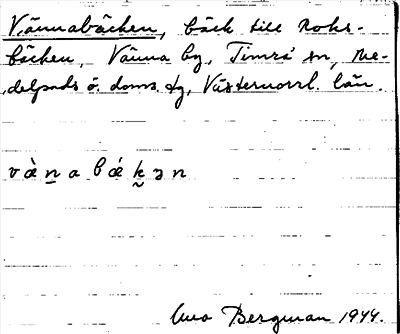 Vännabäcken, bäck till Roks-
bäcken, Vänna by, Timrå sn, Me-
delpads ö. doms. tg, Västernorrl. län.
v à̈ n a b á̈ k̯ ə n
Bergman 1944.